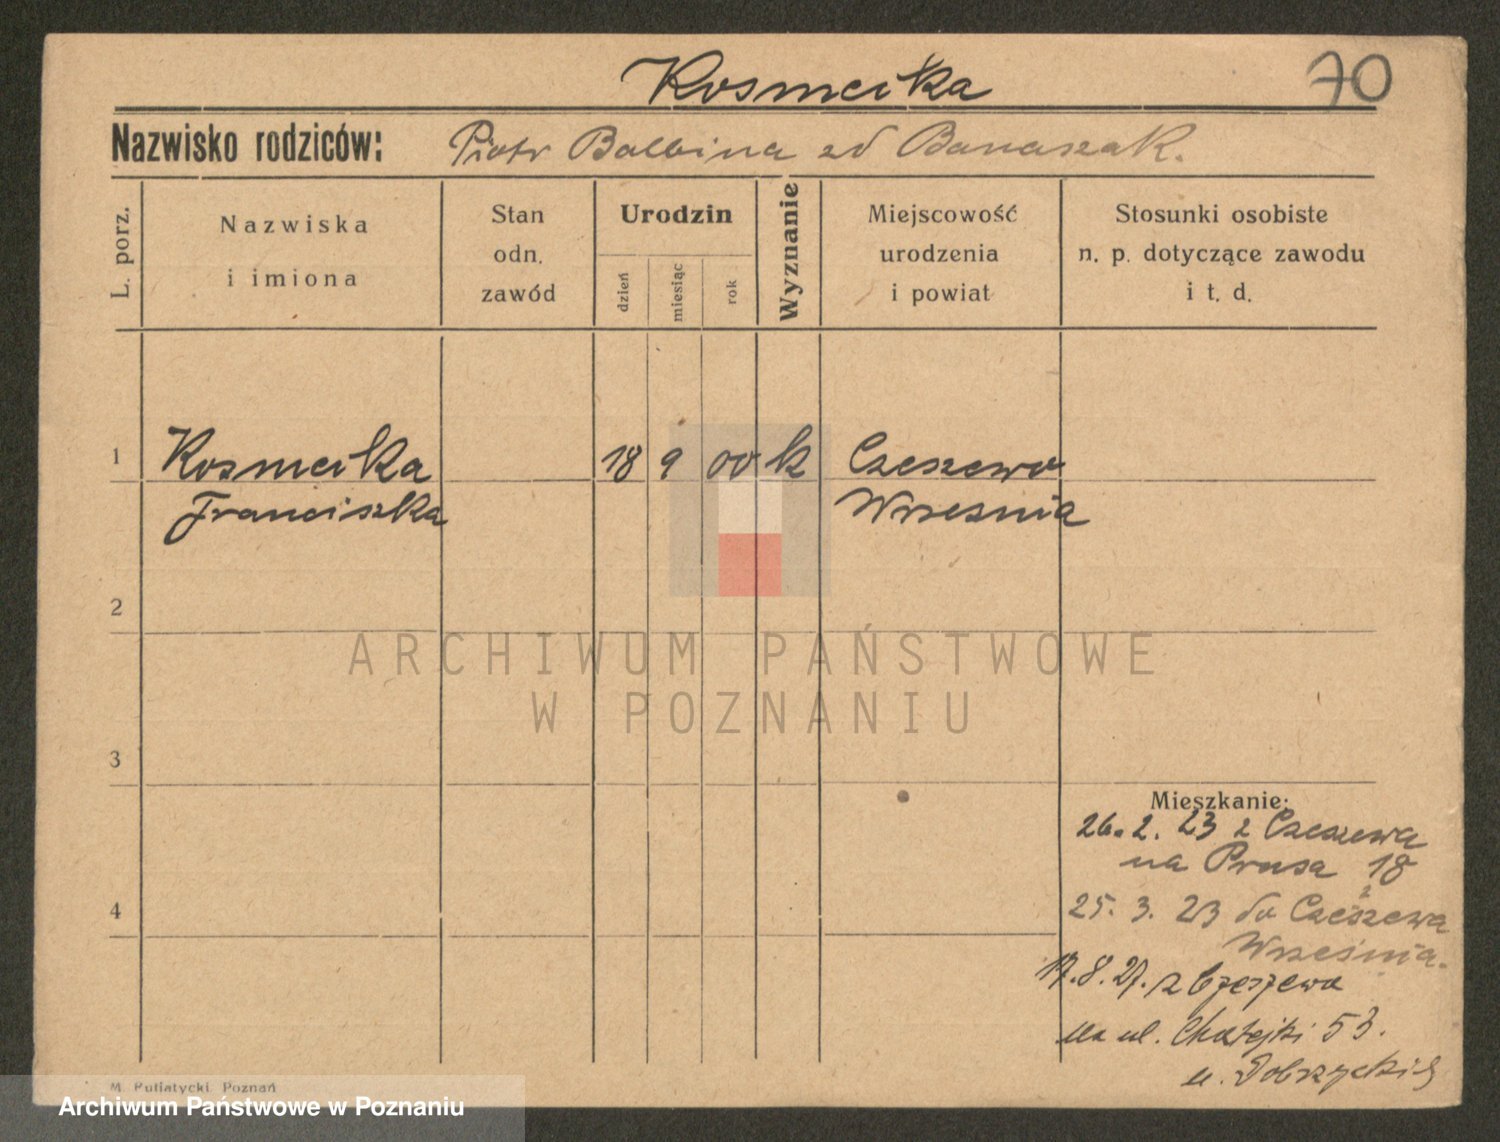 Kosmcika
70
Nazwisko rodziców: Piotr Balbina zd Banaszak.
L. porz.
Nazwiska
i imiona
Stan
odn.
zawód
Urodzin
dzień
miesiąc
rok
Wyznanie
Miejscowość
urodzenia
i powiat
Stosunki osobiste
n. p. dotyczące zawodu
i t. d.
1 Kosmcika 18 9 00 k Czeszewo
Franciszka Wrzesnia
2
ARCHIWUM PAŃSTWOWE
W POZNANIU
3
Mieszkanie:
26. 2. 23 z Czeszewa
na Prusa 18
4
25. 3. 23 do Czeszewa
Września.
17. 8. 27. z Czeszewa
na ul. 53.
u.
M. Putiatycki, Poznań
Archiwum Państwowe w Poznaniu